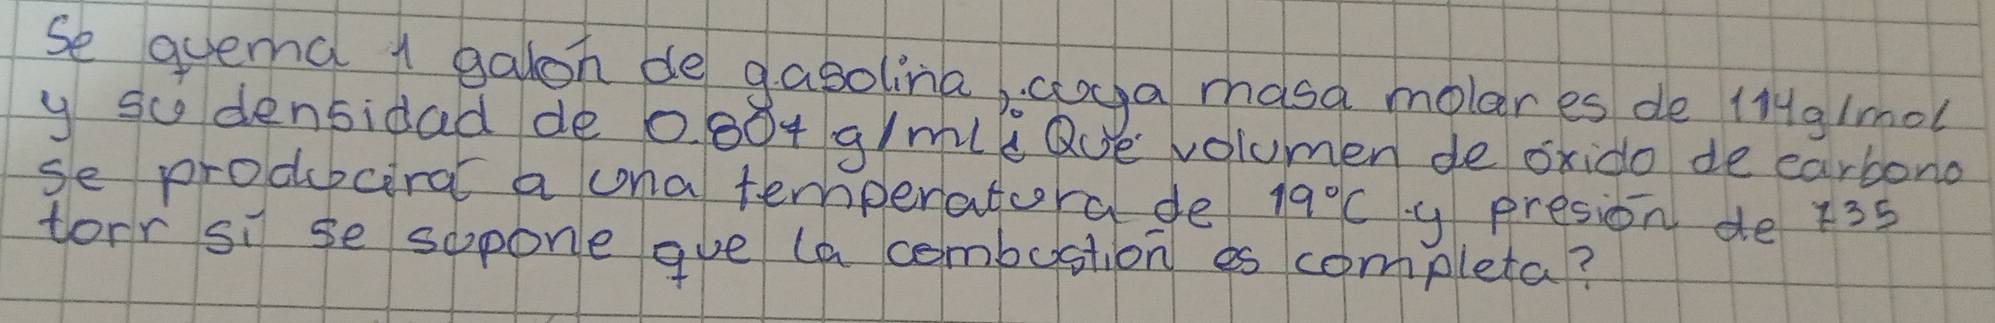 Se quema 1 galón de gasolina, cuya masa molar es de 114g/mol
y su densidad de 0.807 g/ml ¿Que volumen de óxido de carbono
se producirá a una temperatura de 19°C y presión de 735
torr si se supone que la combustión es completa?